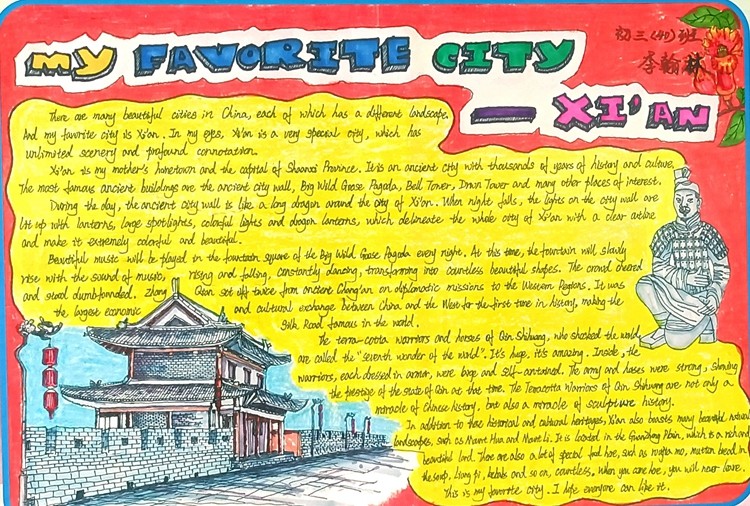 MY FAVORITE CITY
— XI'AN
初三(40)班
李翰林
There are many beautiful cities in China, each of which has a different landscape.
And my favorite city is Xi'an. In my eyes, Xi'an is a very special city, which has
unlimited scenery and profound connotation.
Xi'an is my mother's hometown and the capital of Shaanxi Province. It is an ancient city with thousands of years of history and culture.
The most famous ancient buildings are the ancient city wall, Big Wild Goose Pagoda, Bell Tower, Drum Tower and many other places of interest.
During the day, the ancient city wall is like a long dragon around the city of Xi'an. When night falls, the lights on the city wall are
lit up with lanterns, large spotlights, colorful lights and dragon lanterns, which delineate the whole city of Xi'an with a clear outline
and make it extremely colorful and beautiful.
Beautiful music will be played in the fountain square of the Big Wild Goose Pagoda every night. At this time, the fountain will slowly
rise with the sound of music, rising and falling, constantly dancing, transforming into countless beautiful shapes. The crowd cheered
and stood dumbfounded. Zhang Qian set off twice from ancient Chang'an on diplomatic missions to the Western Regions. It was
the largest economic and cultural exchange between China and the West for the first time in history, making the
Silk Road famous in the world.
The terra-cotta warriors and horses of Qin Shihuang, who shocked the world,
are called the "seventh wonder of the world". It's huge, it's amazing. Inside, the
warriors, each dressed in armor, were large and self-contained. The army and horses were strong, showing
the prestige of the state of Qin at that time. The Terracotta Warriors of Qin Shihuang are not only a
miracle of Chinese history, but also a miracle of sculpture history.
In addition to these historical and cultural heritages, Xi'an also boasts many beautiful natural
landscapes, such as Mount Hua and Mount Li. It is located in the Guanzhong Plain, which is a rich and
beautiful land. There are also a lot of special food here, such as roujia mo, mutton bread in
the soup, liang pi, kebabs and so on, countless, when you come here, you will never leave.
This is my favorite city. I hope everyone can like it.